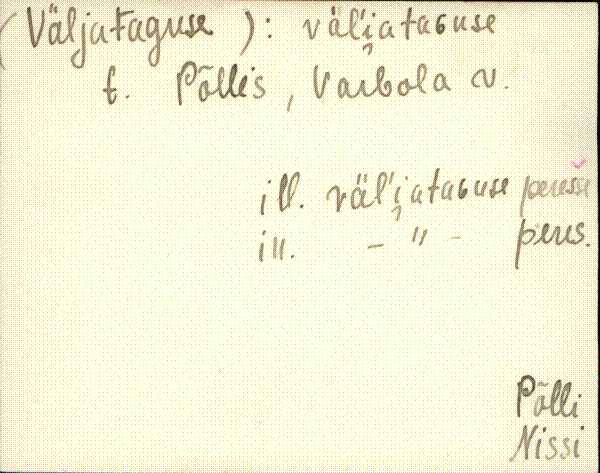 (Väljataguse): väl'i̮ataGuse
t. Põllis, Varbola v.
ill. väl'i̮ataGuse peresse
ill. – " – peres.
Põlli
Nissi